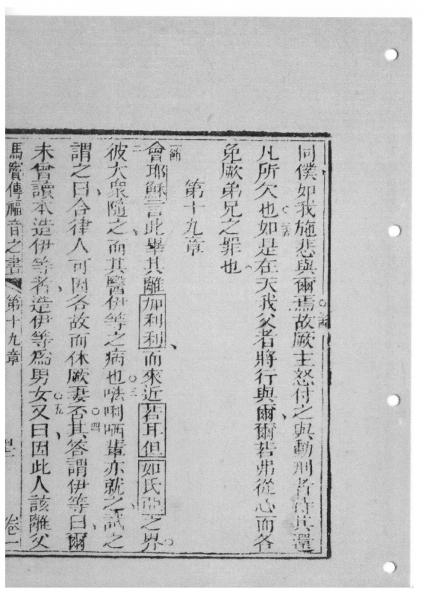 同僕如我施悲與爾焉故厥主怒付之與動刑者待其還
凡所欠也如是在天我父者將行與爾爾若弗從心而各
免厥弟兄之罪也
第十九章
一節會耶穌言此畢其離加利利而來近若耳但如氐亞之界
彼大眾隨之而其醫伊等之病也𠵽唎哂輩亦就之試之
謂之曰合律人可因各故而休厥妻否其答謂伊等曰爾
未曾讀本造伊等者造伊等為男女又曰因此人該離父
馬竇傳福音之書 第十九章 卷一